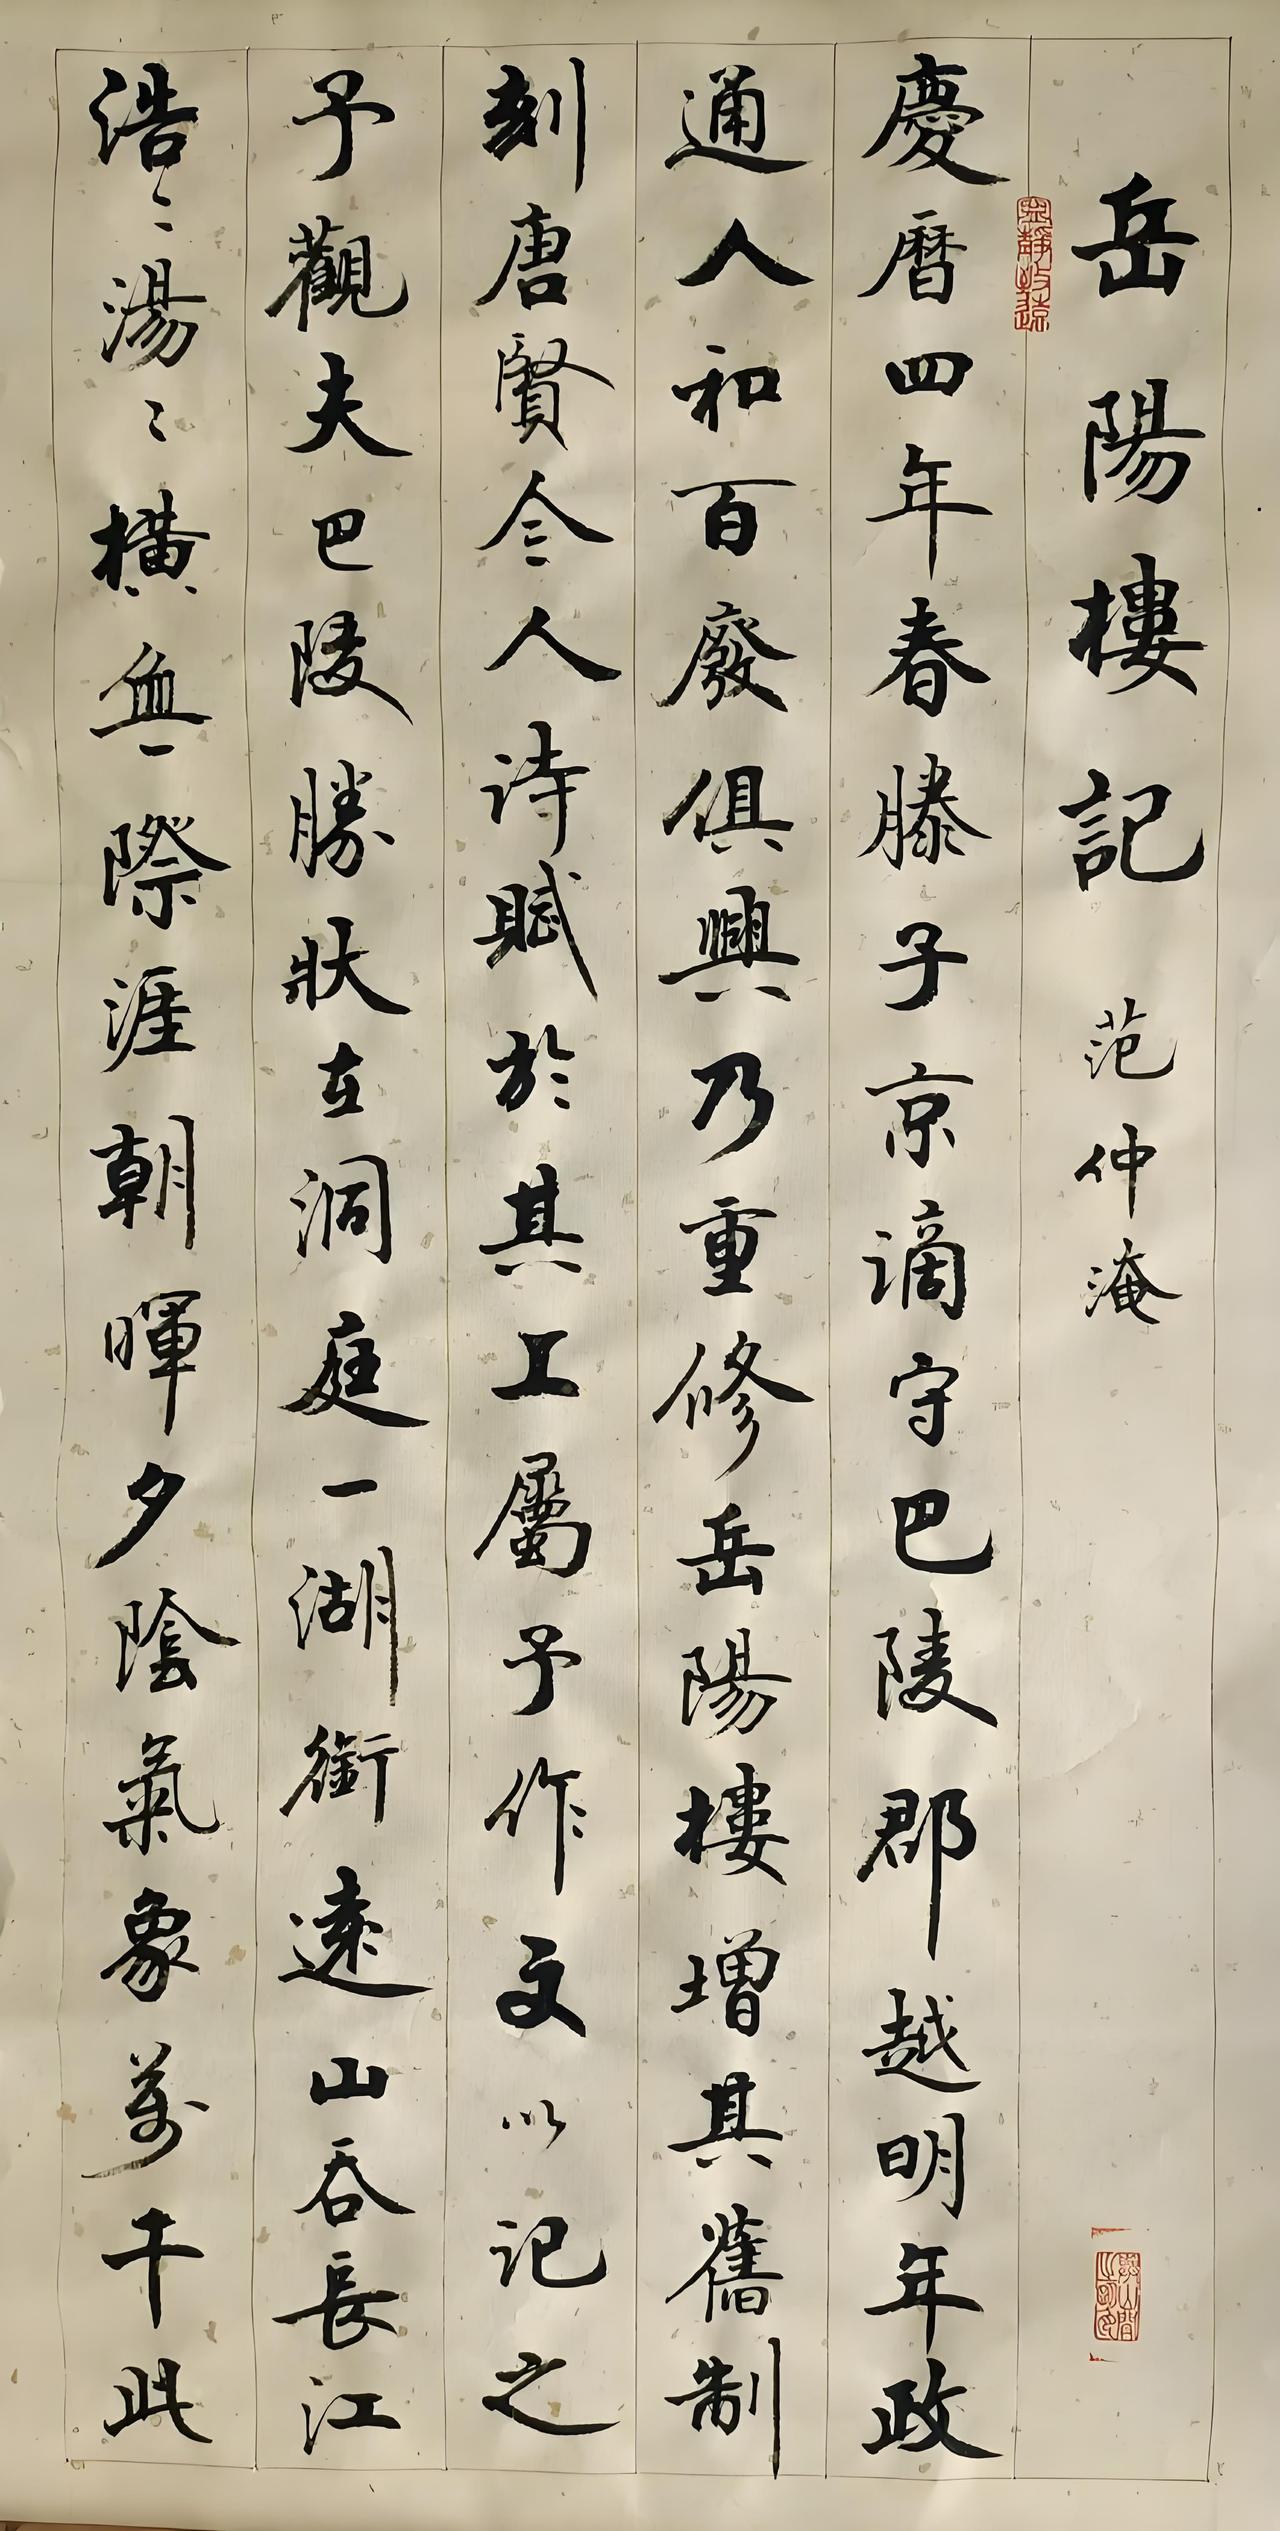 岳陽樓記 范仲淹
寧靜致遠
慶曆四年春滕子京謫守巴陵郡越明年政
通人和百廢俱興乃重修岳陽樓增其舊制
刻唐賢今人詩賦於其上屬予作文以記之
予觀夫巴陵勝狀在洞庭一湖銜遠山吞長江
浩〻湯〻橫無際涯朝暉夕陰氣象萬千此